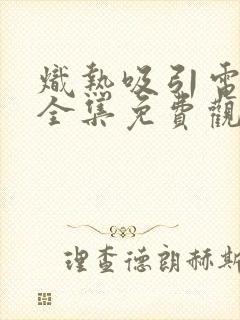 熾熱吸引電
全集免費觀
理查德朗赫斯